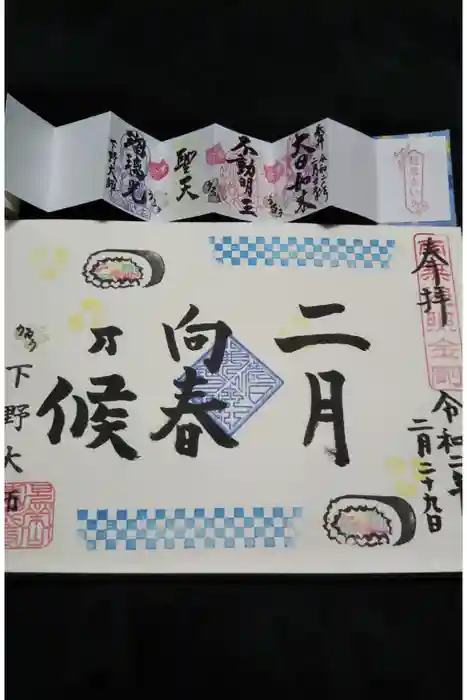 奉拝
令和二年
二月二十九日
二月
向春
ノ
候
下野大師
奉拝
令和二年
大日如来
不動明王
聖天
瑠璃光
下野大師